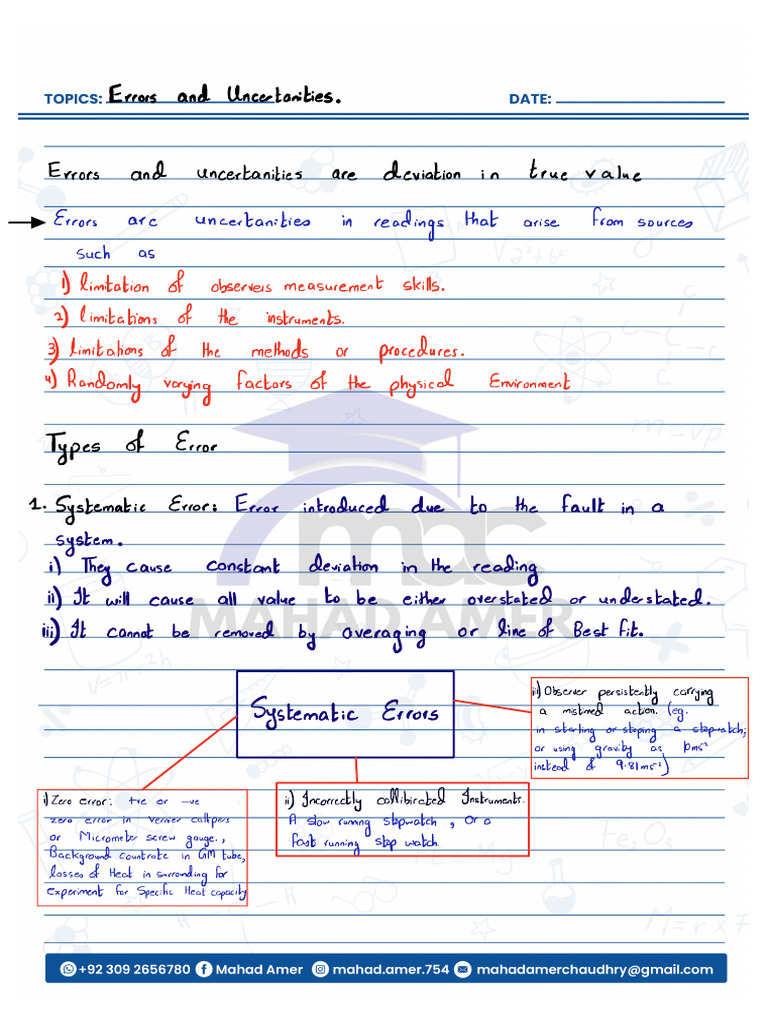 TOPICS: Errors and Uncertanities.
DATE:
Errors and uncertanities are deviation in true value
Errors are uncertanities in readings that arise from sources
such as
1) limitation of observers measurement skills.
2) limitations of the instruments.
3) limitations of the methods or procedures.
4) Randomly varying factors of the physical Environment
Types of Error
1. Systematic Error: Error introduced due to the fault in a
system.
i) They cause constant deviation in the reading
ii) It will cause all value to be either overstated or understated.
iii) It cannot be removed by averaging or line of Best fit.
Systematic Errors
iii) Observer persistently carrying
a mistimed action. (eg.
in starting or stoping a stopwatch;
or using gravity as 10ms²
instead of 9.81ms²)
i) Zero error: +ve or -ve
zero error in Vernier callipers
or Micrometer screw gauge.,
Background countrate in GM tube,
losses of Heat in surrounding for
experiment for Specific Heat capacity
ii) Incorrectly callibirated Instruments.
A slow running stopwatch, Or a
fast running stop watch.
mac
MAHAD AMER
√a²+b²
m=vp
V=πr²h
Fe₂O₃
+92 309 2656780 Mahad Amer mahad.amer.754 mahadamerchaudhry@gmail.com